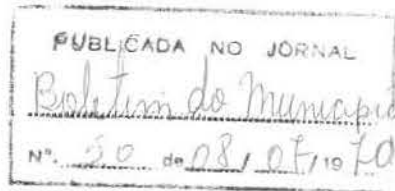 PUBLICADA NO JORNAL
Boletim do Município
Nº. 20 de 08 / 07 / 1970